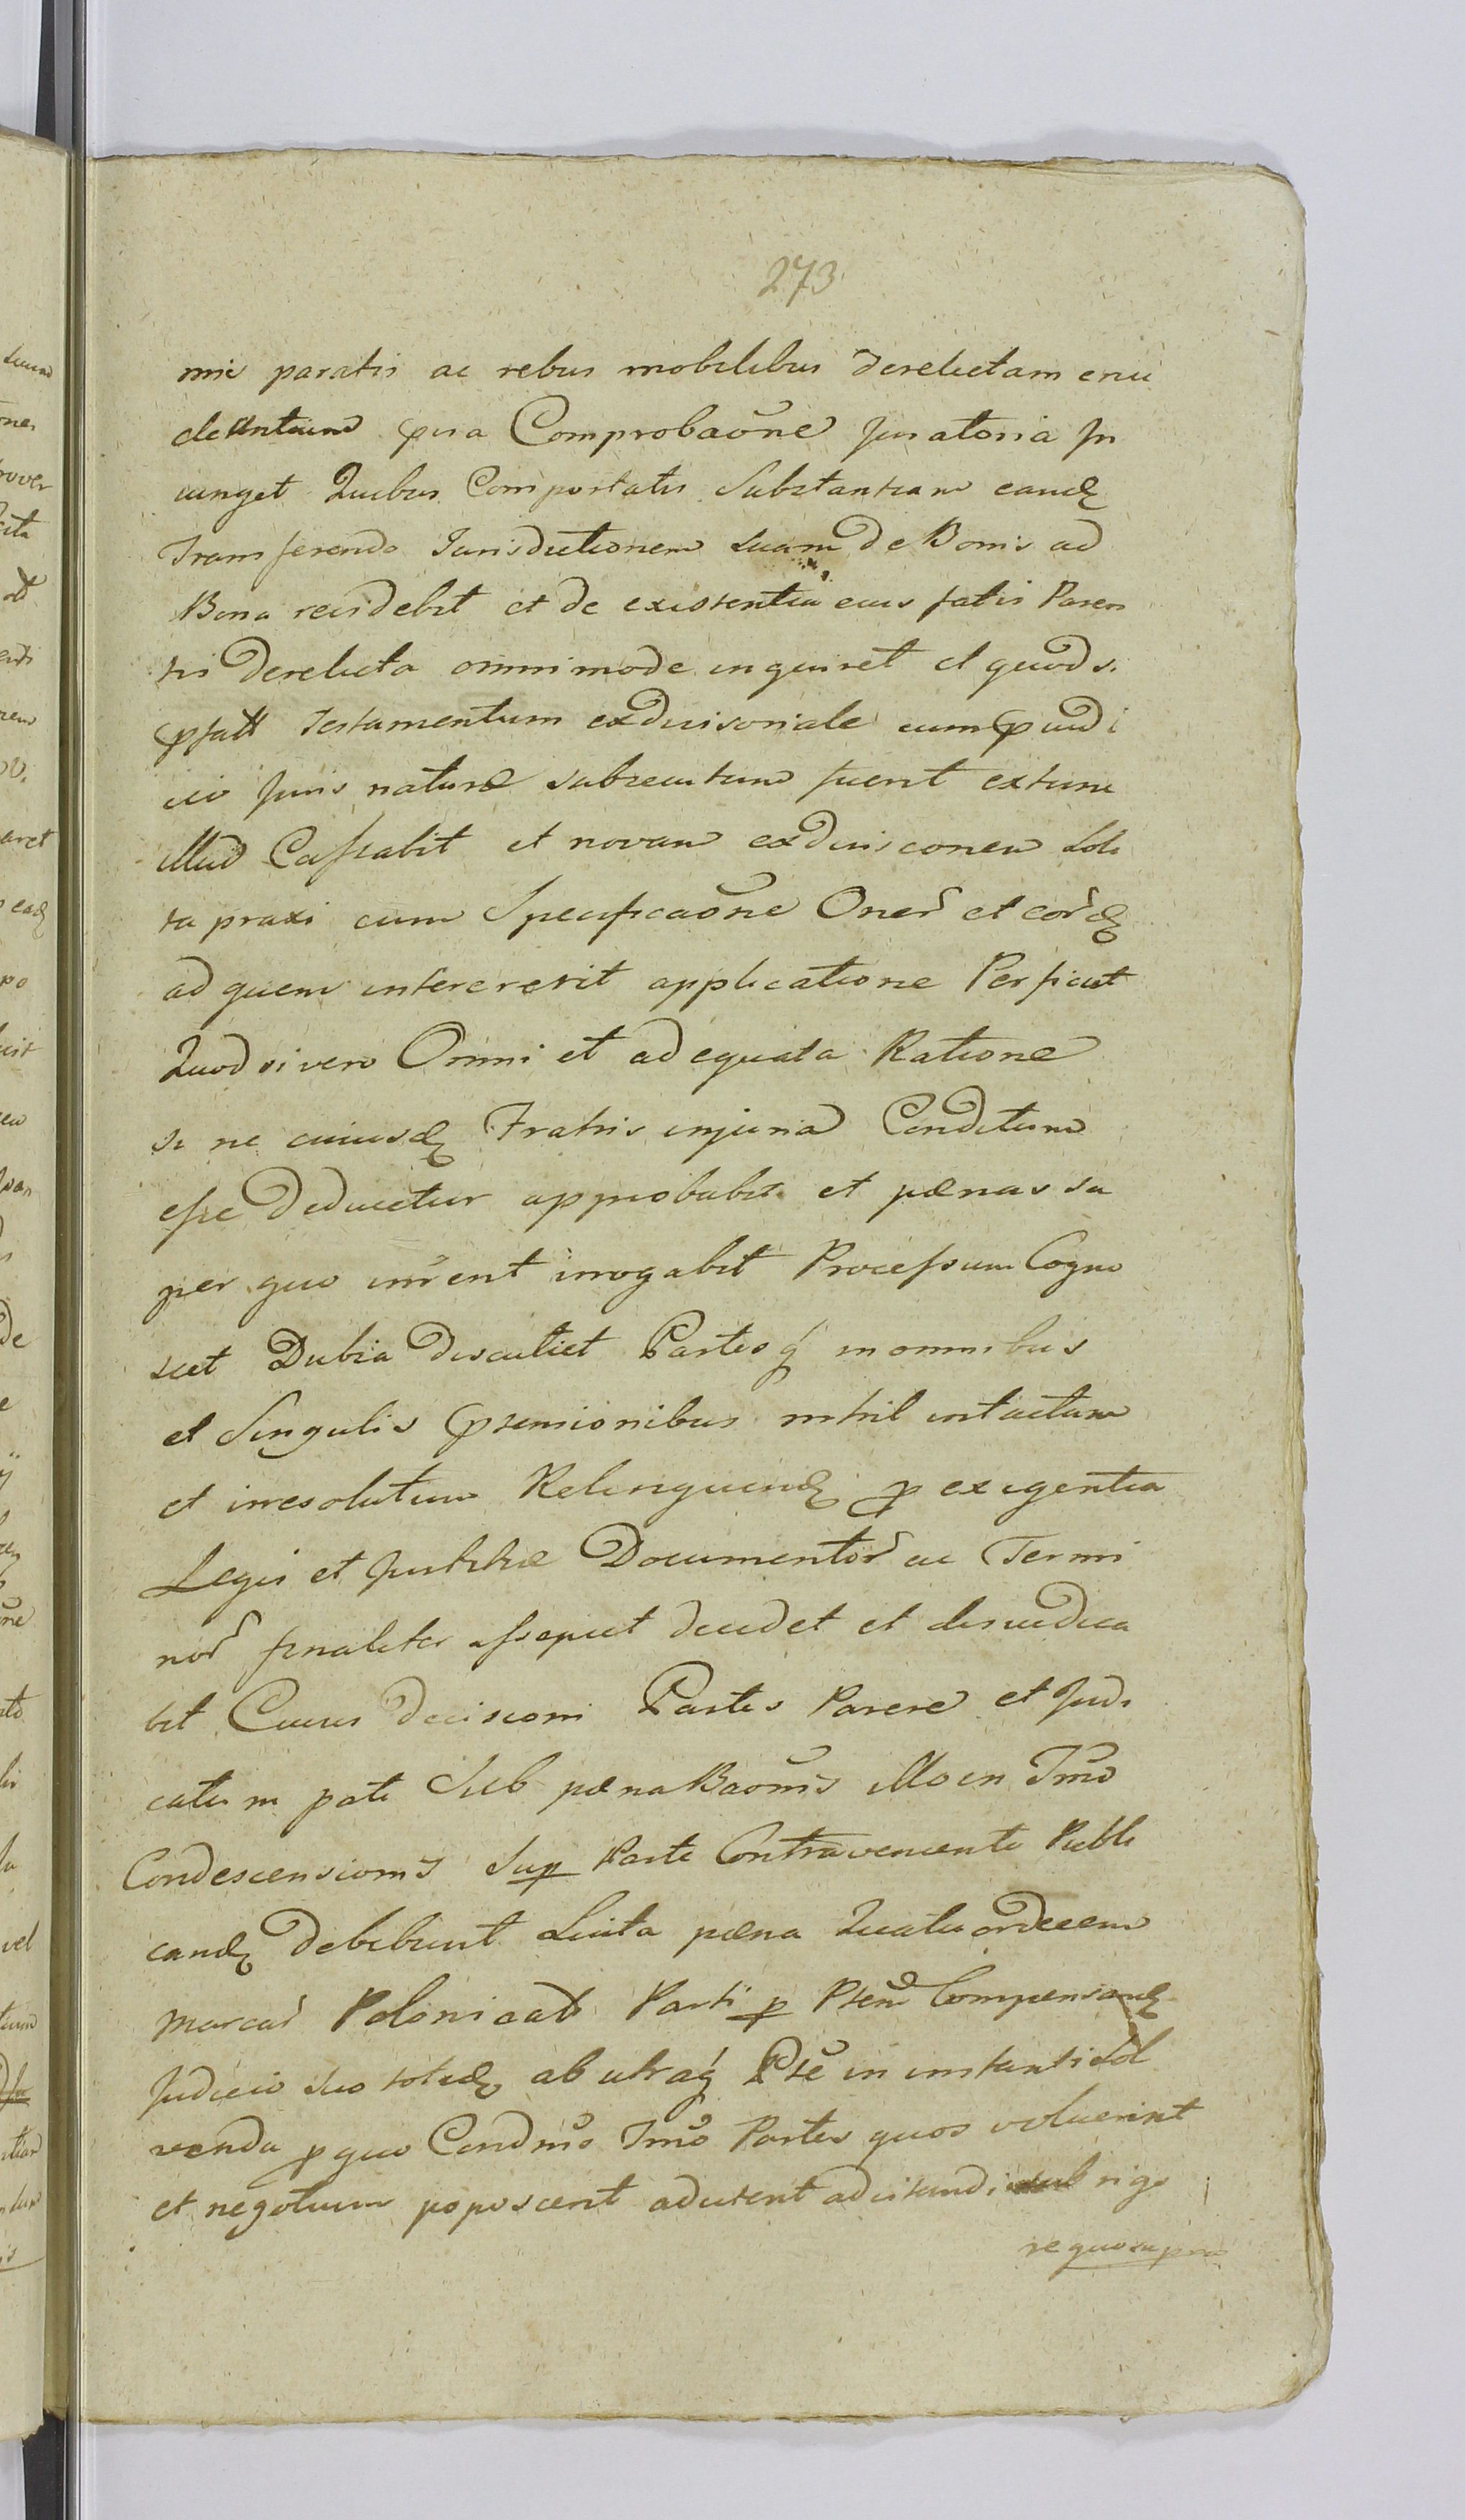 273
mis paratis ac rebus mobilibus derelictam enu
cleantium pvia Comprobaōne juratoria In
iunget Quibus Comportatis Substantiam eandę
Transferendo Jurisdictionem suam de Bonis ad
Bona residebit et de existentia eius fatis Paren
tis derelicta omnimode inquiret et quod si
pfatt testamentum exdivisoriale cum pjudi
cio Juris naturæ subsecutum fuerit extunc
illud Cassabit et novam exdivisionem Soli
ta praxi cum Specificaōne Oner̃ et eor̃dę
ad quem intererit applicatione Perficiet
Quod si vero Omni et adequata Ratione
si ne cuiusdę Fratris injuria Conditum
esse deducetur approbabit et pænas su
per quo inr̃ent irrogabit Processum Cogno
scet Dubia discutiet Partesq́ in omnibus
et Singulis ptensionibus nihil intactum
et irresolutum Relinquendę p exigentia
Legis et Justitiæ Documentor̃ ac Termi
nor̃ finaliter assopiet decidet et diiudica
bit Cuius decisioni Partes Parere et Judi
catum pati Sub pæna Baōnis illo in Tmõ
Condescensionis Sup Parte Contraveniente Publi
candę debebunt Luita pæna Quatuordecem
Marcar̃ Polonicał Parti p Ptem̃ Compensandę
Judicio suo totidę ab utraq́ Ptẽ in instanti Sol
venda p quo Condnõ Tmõ Partes quos voluerint
et negotium poposcerit aducent aducendi sub rigo
re quo supra